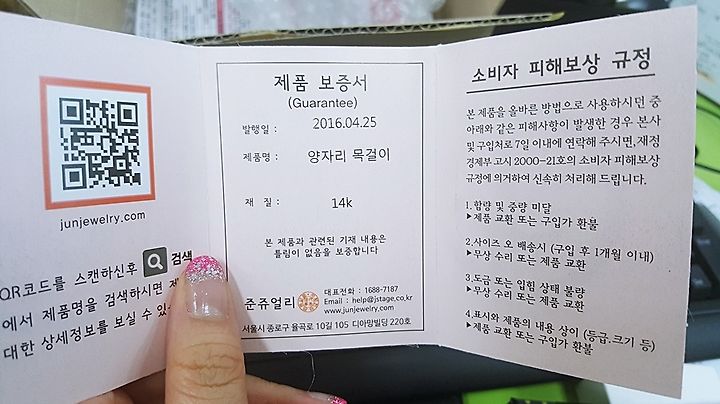 junjewelry.com
QR코드를 스캔하신후 검색
에서 제품명을 검색하시면
대한 상세정보를 보실 수
제품 보증서
(Guarantee)
발행일 : 2016.04.25
제품명 : 양자리 목걸이
재 질 : 14k
본 제품과 관련된 기재 내용은
틀림이 없음을 보증합니다.
준쥬얼리
대표전화 : 1688-7187
Email : help@jstage.co.kr
www.junjewelry.com
서울시 종로구 율곡로 10길 105 디아망빌딩 220호
소비자 피해보상 규정
본 제품을 올바른 방법으로 사용하시던 중
아래와 같은 피해사항이 발생한 경우 본사
및 구입처로 7일 이내에 연락해 주시면, 재정
경제부 고시 2000-21호의 소비자 피해보상
규정에 의거하여 신속히 처리해 드립니다.
1.함량 및 중량 미달
▶제품 교환 또는 구입가 환불
2.사이즈 오 배송시 (구입 후 1개월 이내)
▶무상 수리 또는 제품 교환
3.도금 또는 입힘 상태 불량
▶무상 수리 또는 제품 교환
4.표시와 제품의 내용 상이 (등급.크기 등)
▶제품 교환 또는 구입가 환불